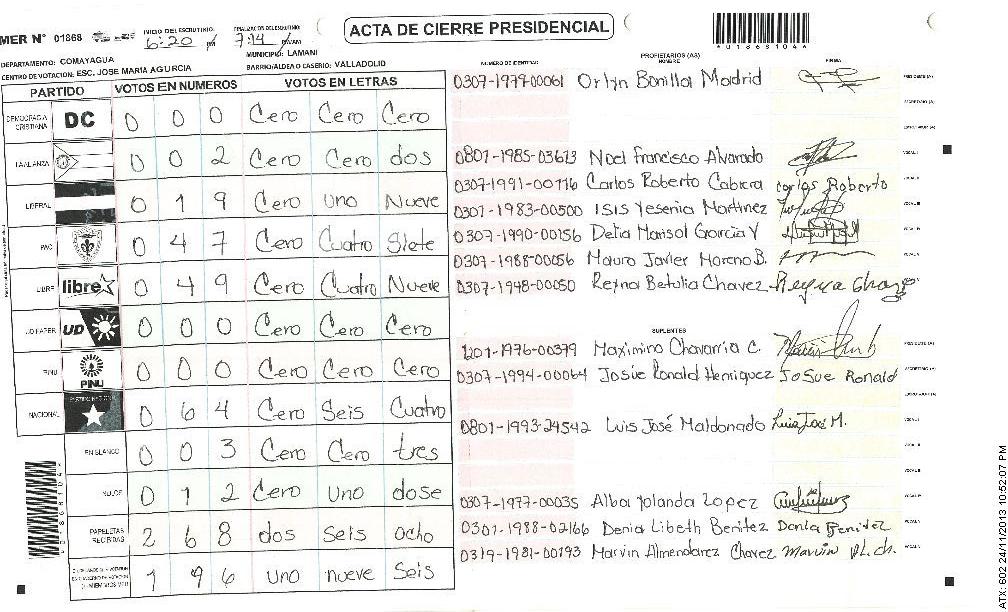 ACTA DE CIERRE PRESIDENCIAL
MER N° 01868
INICIO DEL ESCRUTINIO: 6:20 PM
FINALIZACION DEL ESCRUTINIO: 7:14 PM/AM
DEPARTAMENTO: COMAYAGUA
MUNICIPIO: LAMANI
CENTRO DE VOTACION: ESC. JOSE MARIA AGURCIA
BARRIO/ALDEA O CASERIO: VALLADOLIO
PARTIDO VOTOS EN NUMEROS VOTOS EN LETRAS
DEMOCRACIA CRISTIANA DC 0 0 0 Cero Cero Cero
LA ALIANZA 0 0 2 Cero Cero dos
LIBERAL 0 1 9 Cero uno Nueve
PAC 0 4 7 Cero Cuatro Siete
LIBRE libre 0 4 9 Cero Cuatro Nueve
UD FAPER UD 0 0 0 Cero Cero Cero
PINU PINU 0 0 0 Cero Cero Cero
NACIONAL 0 6 4 Cero Seis Cuatro
EN BLANCO 0 0 3 Cero Cero tres
NULOS 0 1 2 Cero uno dose
PAPELETAS RECIBIDAS 2 6 8 dos Seis ocho
1 9 6 uno nueve Seis
NUMERO DE IDENTIDAD PROPIETARIOS (AS) NOMBRE FIRMA
Orlyn Bonilla Madrid PRESIDENTE (A)
SECRETARIO (A)
ESCRUTADOR (A)
0801-1985-03613 Noel Francisco Alvarado VOCAL I
0307-1991-00116 Carlos Roberto Cabrera Carlos Roberto VOCAL II
0301-1983-00500 ISIS Yesenia Martinez VOCAL III
0307-1990-00156 Delia Marisol Garcia Y VOCAL IV
0307-1988-00056 Mauro Javier Moreno B. VOCAL V
0307-1948-00050 Reyna Betulia Chavez Reyna Chavez
SUPLENTES
1201-1976-00379 Maximino Chavarria C. PRESIDENTE (A)
0307-1994-00064 Josue Ronald Henriquez Josue Ronald SECRETARIO (A)
0801-1993-24542 Luis José Maldonado Luis José M. VOCAL I
0307-1977-00035 Alba Yolanda Lopez VOCAL IV
0301-1988-02166 Denia Libeth Benitez Denia Benitez VOCAL V
0319-1981-00193 Marvin Almendarez Chavez
ATX: 602 24/11/2013 10:52:07 PM